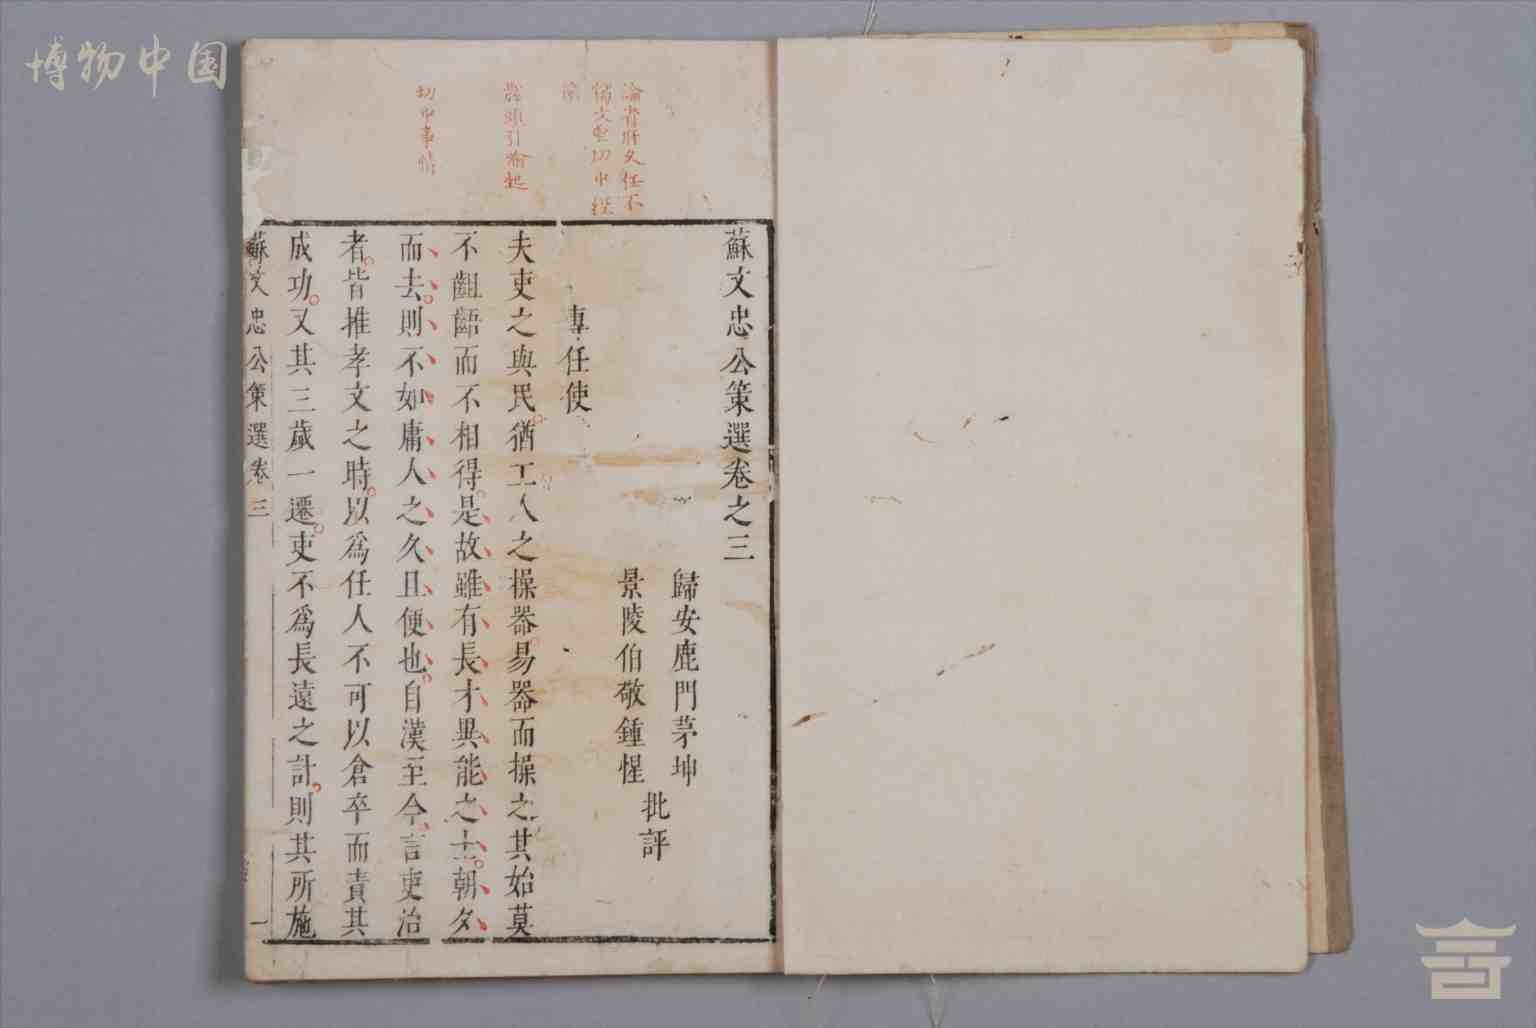 博物中国
論省府久任不
獨文
切中
農頭引喻起
切中事情
蘇文忠公策選卷之三
歸安鹿門茅坤
景陵伯敬鍾惺
批評
專任使
夫吏之與民猶工人之操器易器而操之其始莫
不齟齬而不相得是故雖有長才異能之士朝夕
而去則不如庸人之久且便也自漢至今言吏治
者皆推孝文之時以爲任人不可以倉卒而責其
成功又其三歲一遷吏不爲長遠之計則其所施
蘇文忠公策選卷三
一